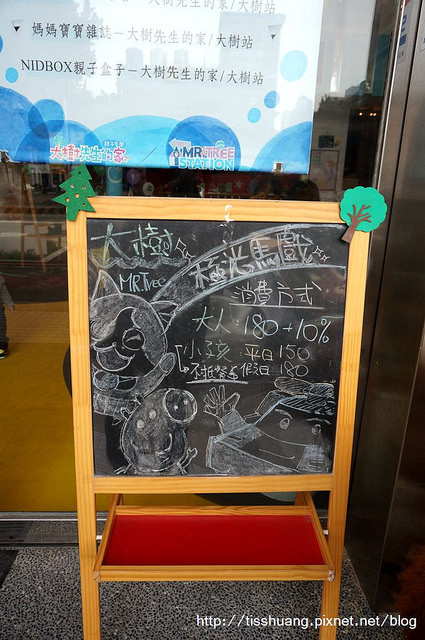 媽媽寶寶雜誌－大樹先生的家/大樹站
NIDBOX親子盒子－大樹先生的家/大樹站
大樹先生的家
MR.TREE
STATION
大樹
極光馬戲
MR.Tree
消費方式
大人:180+10%
小孩:平日150
不抵餐点 假日180
http://tisshuang.pixnet.net/blog